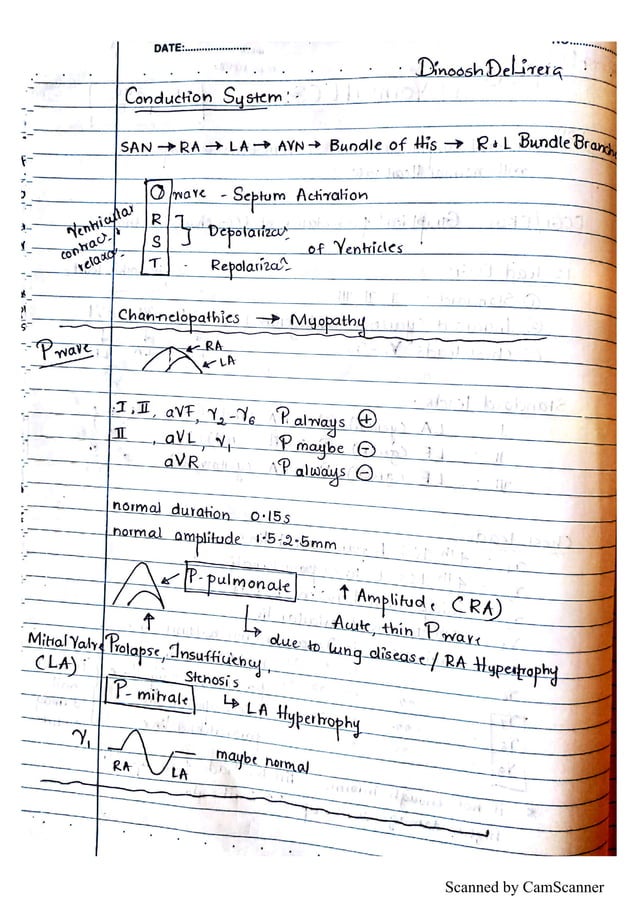 DATE:........................
Dinoosh DeLivera
Conduction System:
SAN → RA → LA → AVN → Bundle of His → R & L Bundle Branch
Q wave - Septum Activation
R
S ] Depolarizaⁿ
of Ventricles
T - Repolarizaⁿ
Ventricular
contracⁿ
relaxaⁿ
Channelopathies → Myopathy
P wave
RA
LA
I, II, aVF, V2-V6 P always ⊕
II , aVL, V1 P maybe ⊖
aVR P always ⊖
normal duration 0.15s
normal amplitude 1.5-2.5mm
P-pulmonale
↑ Amplitude (RA)
Acute, thin P wave
↳ due to lung disease / RA Hypertrophy
Mitral Valve Prolapse, Insufficiency,
Stenosis
(LA)
P-mitrale ↳ LA Hypertrophy
V1
RA
LA
maybe normal
Scanned by CamScanner